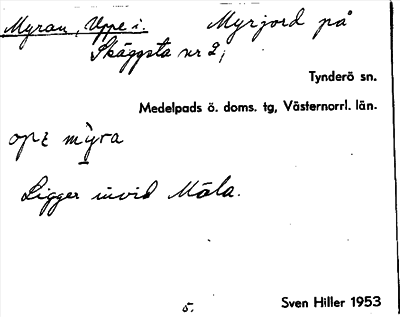 Myran, Uppe i. Myrjord på
Skäggsta nr 2,
Tynderö sn.
Medelpads ö. doms. tg, Västernorrl. län.
mỳra
Ligger invid Mäla.
5.
Sven Hiller 1953